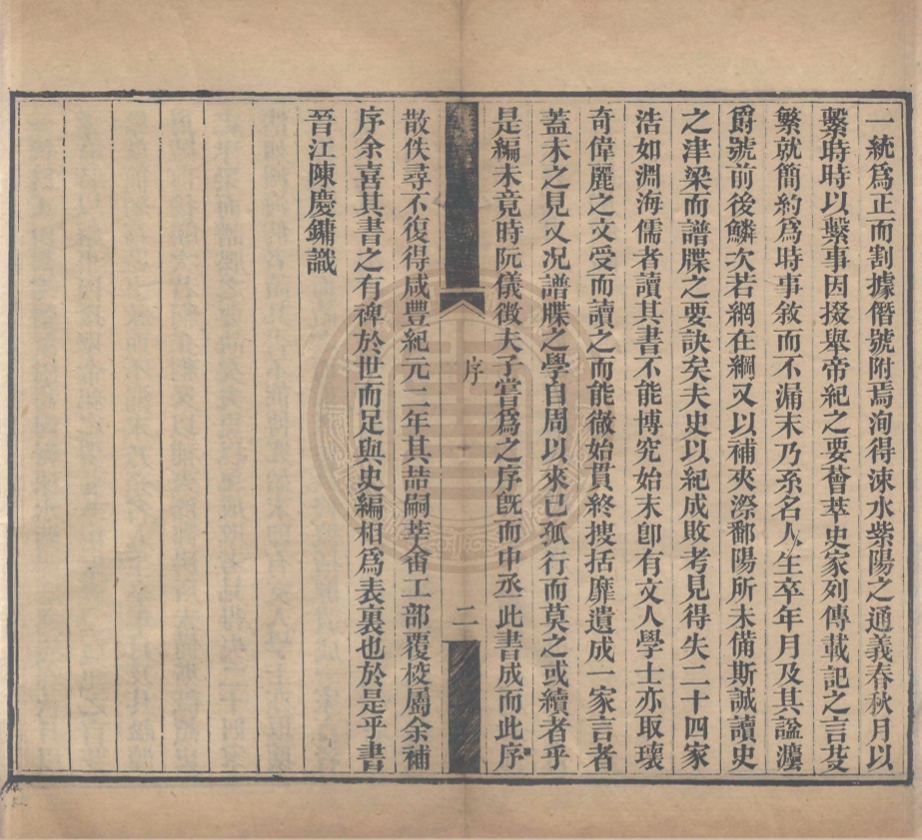 一統爲正而割據僭號附焉洵得涑水紫陽之通義春秋月以
繫時時以繫事因掇舉帝紀之要薈萃史家列傳載記之言芟
繁就簡約爲時事敘而不漏末乃系名人生卒年月及其諡灋
爵號前後鱗次若網在綱又以補夾漈鄱陽所未備斯誠讀史
之津梁而譜牒之要訣矣夫史以紀成敗考見得失二十四家
浩如淵海儒者讀其書不能博究始末卽有文人學士亦取瓌
奇偉麗之文受而讀之而能徹始貫終捜括靡遺成一家言者
蓋未之見又况譜牒之學自周以來已孤行而莫之或續者乎
是編未竟時阮儀徵夫子嘗爲之序旣而中丞此書成而此序
序
二
散佚尋不復得咸豐紀元二年其喆嗣莘畬工部覆校屬余補
序余喜其書之有裨於世而足與史編相爲表裏也於是乎書
晉江陳慶鏞識